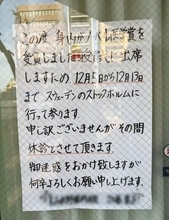 この度 身内がノーベル医学賞を
受賞しました為 に出席
しますため、12月5日から12月13日
まで スウェーデンのストックホルムに
行って参ります。
申し訳ございませんが その間
休診とさせて頂きます。
御迷惑をおかけ致しますが
何卒よろしくお願い申し上げます。